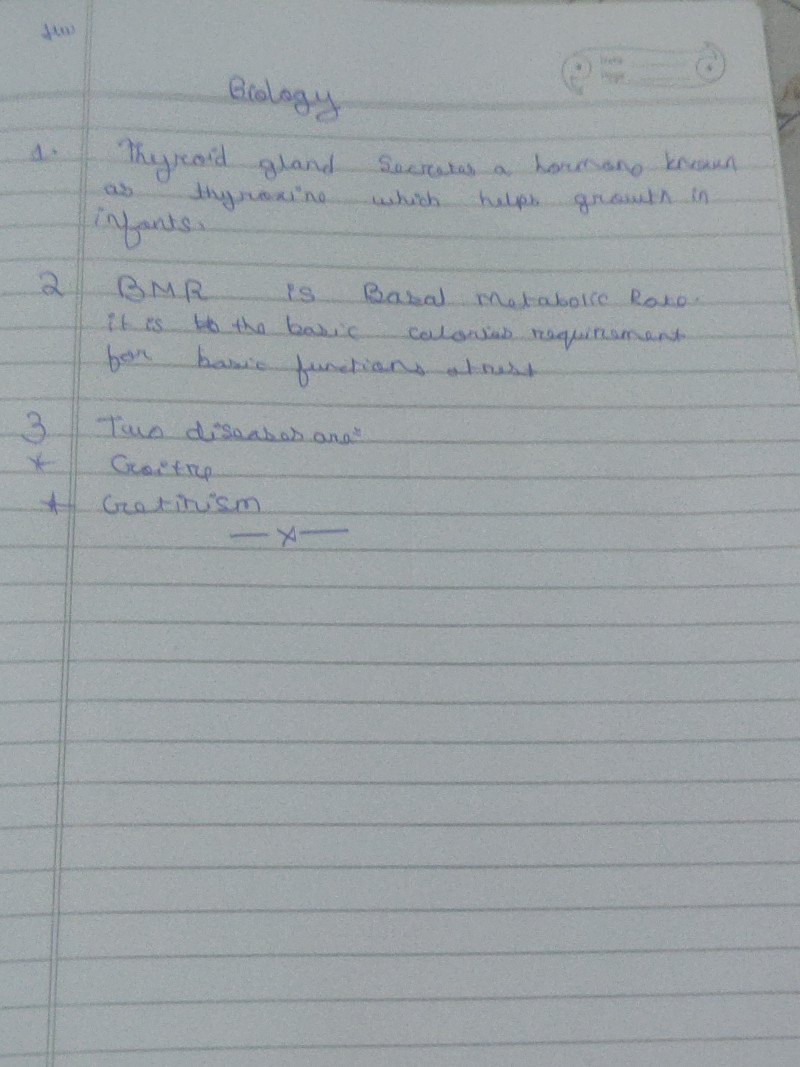 HW
Biology
1. Thyroid gland Secretes a hormone known
as thyroxine which helps growth in
infants.
2 BMR is Basal Metabolic Rate.
it is to the basic calories requirement
for basic functions at rest
3 Two diseases are:
* Goitre
* Cretinism
— x —